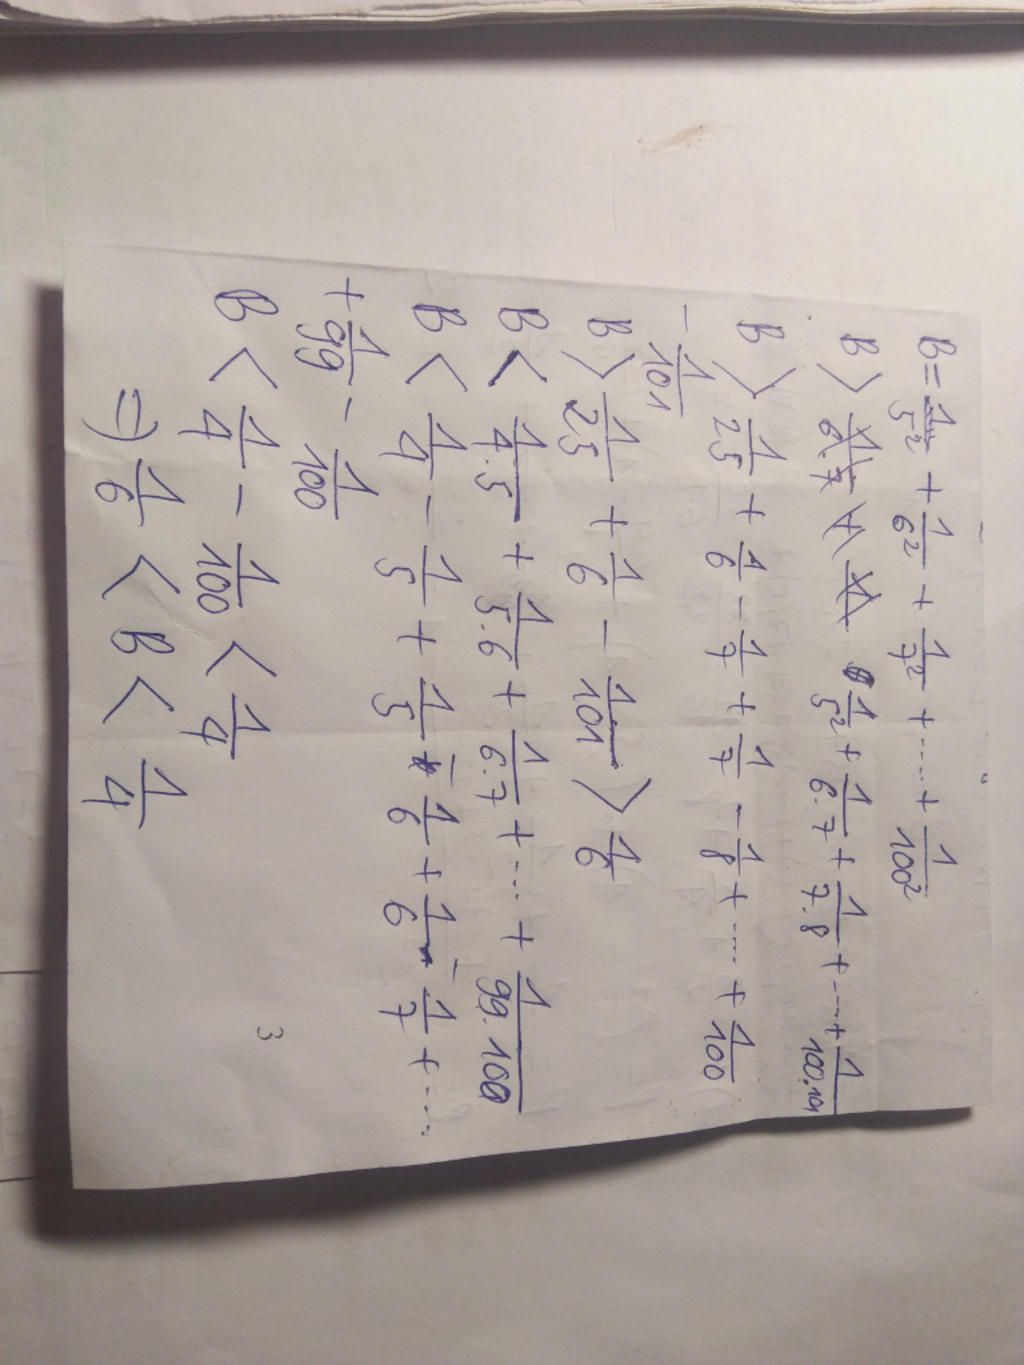 B = 1/5² + 1/6² + 1/7² + .... + 1/100²
B > 1/5² + 1/6.7 + 1/7.8 + .... + 1/100.101
B > 1/25 + 1/6 - 1/7 + 1/7 - 1/8 + .... + 1/100
- 1/101
B > 1/25 + 1/6 - 1/101 > 1/6
B < 1/4.5 + 1/5.6 + 1/6.7 + ... + 1/99.100
B < 1/4 - 1/5 + 1/5 - 1/6 + 1/6 - 1/7 + ....
+ 1/99 - 1/100
B < 1/4 - 1/100 < 1/4
=) 1/6 < B < 1/4
3